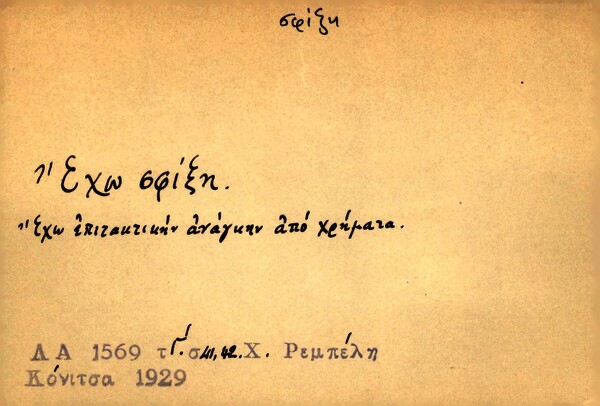 σφίξη
Ἔχω σφίξη.
Ἔχω ἐπιτακτικὴν ἀνάγκην ἀπό χρήματα.
ΛΑ 1569 τ Γ΄. σ 41, 42. Χ. Ρεμπέλη
Κόνιτσα 1929